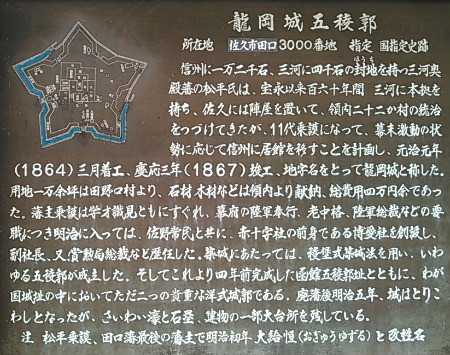 龍岡城五稜郭
所在地 佐久市田口3000番地 指定 国指定史跡
信州に一万二千石、三河に四千石の封地を持つ三河奥
ほうち
殿藩の松平氏は、宝永以来百六十年間 三河に本拠を
持ち、佐久には陣屋を置いて、領内二十二か村の統治
をつづけてきたが、11代乗謨になって、幕末激動の状
勢に応じて信州に居館を移すことを計画し、元治元年
(1864)三月着工、慶応三年(1867)竣工、地字名をとって龍岡城と称した。
用地一万余坪は田野口村より、石材 木材などは領内より献納、総費用四万両余であっ
た。藩主乗謨は学才識見ともにすぐれ、幕府の陸軍奉行、老中格、陸軍総裁などの要
職につき明治に入っては、佐野常民と共に、赤十字社の前身である博愛社を創設し、
副社長、又、賞勲局総裁など歴任した。築城にあたっては、稜堡式築城法を用い、いわ
ゆる五稜郭が成立した。そしてこれより四年前完成した函館五稜郭址とともに、わが
国城址の中においてただ二つの貴重な洋式城郭である。廃藩後明治五年、城はとりこ
わしとなったが、さいわい濠と石塁、建物の一部大台所を残している。
注 松平乗謨、田口藩最後の藩主で明治初年 大給恒(おぎゅうゆずる)と改姓名